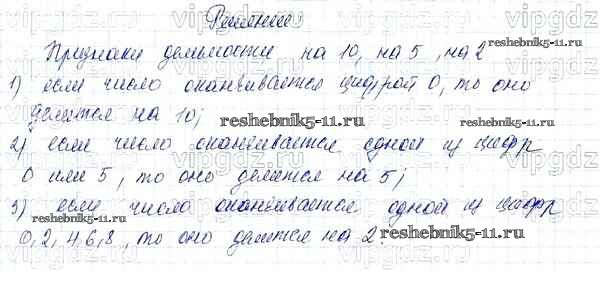 Решение:
Признаки делимости на 10, на 5, на 2
1) если число оканчивается цифрой 0, то оно
делится на 10;
reshebnik5-11.ru
2) если число оканчивается одной из цифр
0 или 5, то оно делится на 5;
reshebnik5-11.ru
3) если число оканчивается одной из цифр
reshebnik5-11.ru
0, 2, 4, 6, 8, то оно делится на 2.
reshebnik5-11.ru
vipgdz